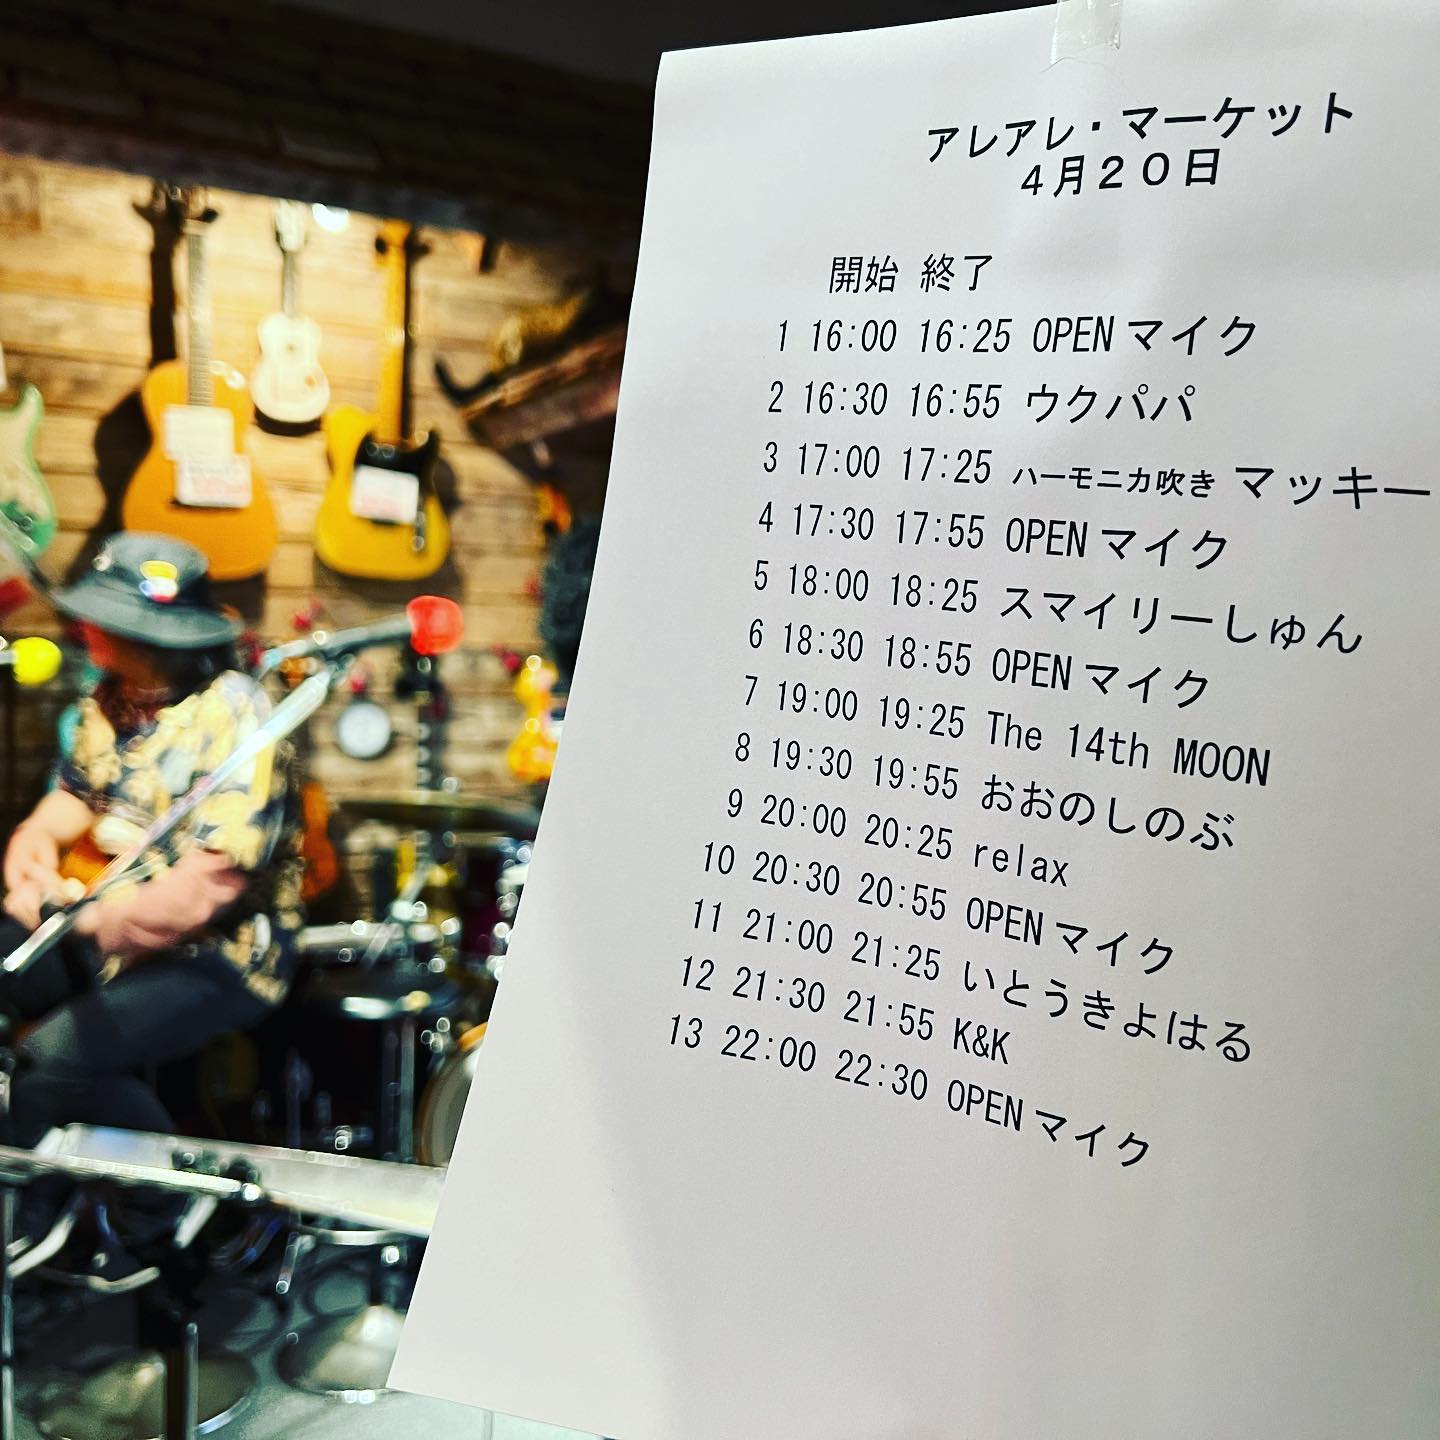 アレアレ・マーケット
４月２０日
開始 終了
1 16:00 16:25 OPENマイク
2 16:30 16:55 ウクパパ
3 17:00 17:25 ハーモニカ吹き マッキー
4 17:30 17:55 OPENマイク
5 18:00 18:25 スマイリーしゅん
6 18:30 18:55 OPENマイク
7 19:00 19:25 The 14th MOON
8 19:30 19:55 おおのしのぶ
9 20:00 20:25 relax
10 20:30 20:55 OPENマイク
11 21:00 21:25 いとうきよはる
12 21:30 21:55 K&K
13 22:00 22:30 OPENマイク